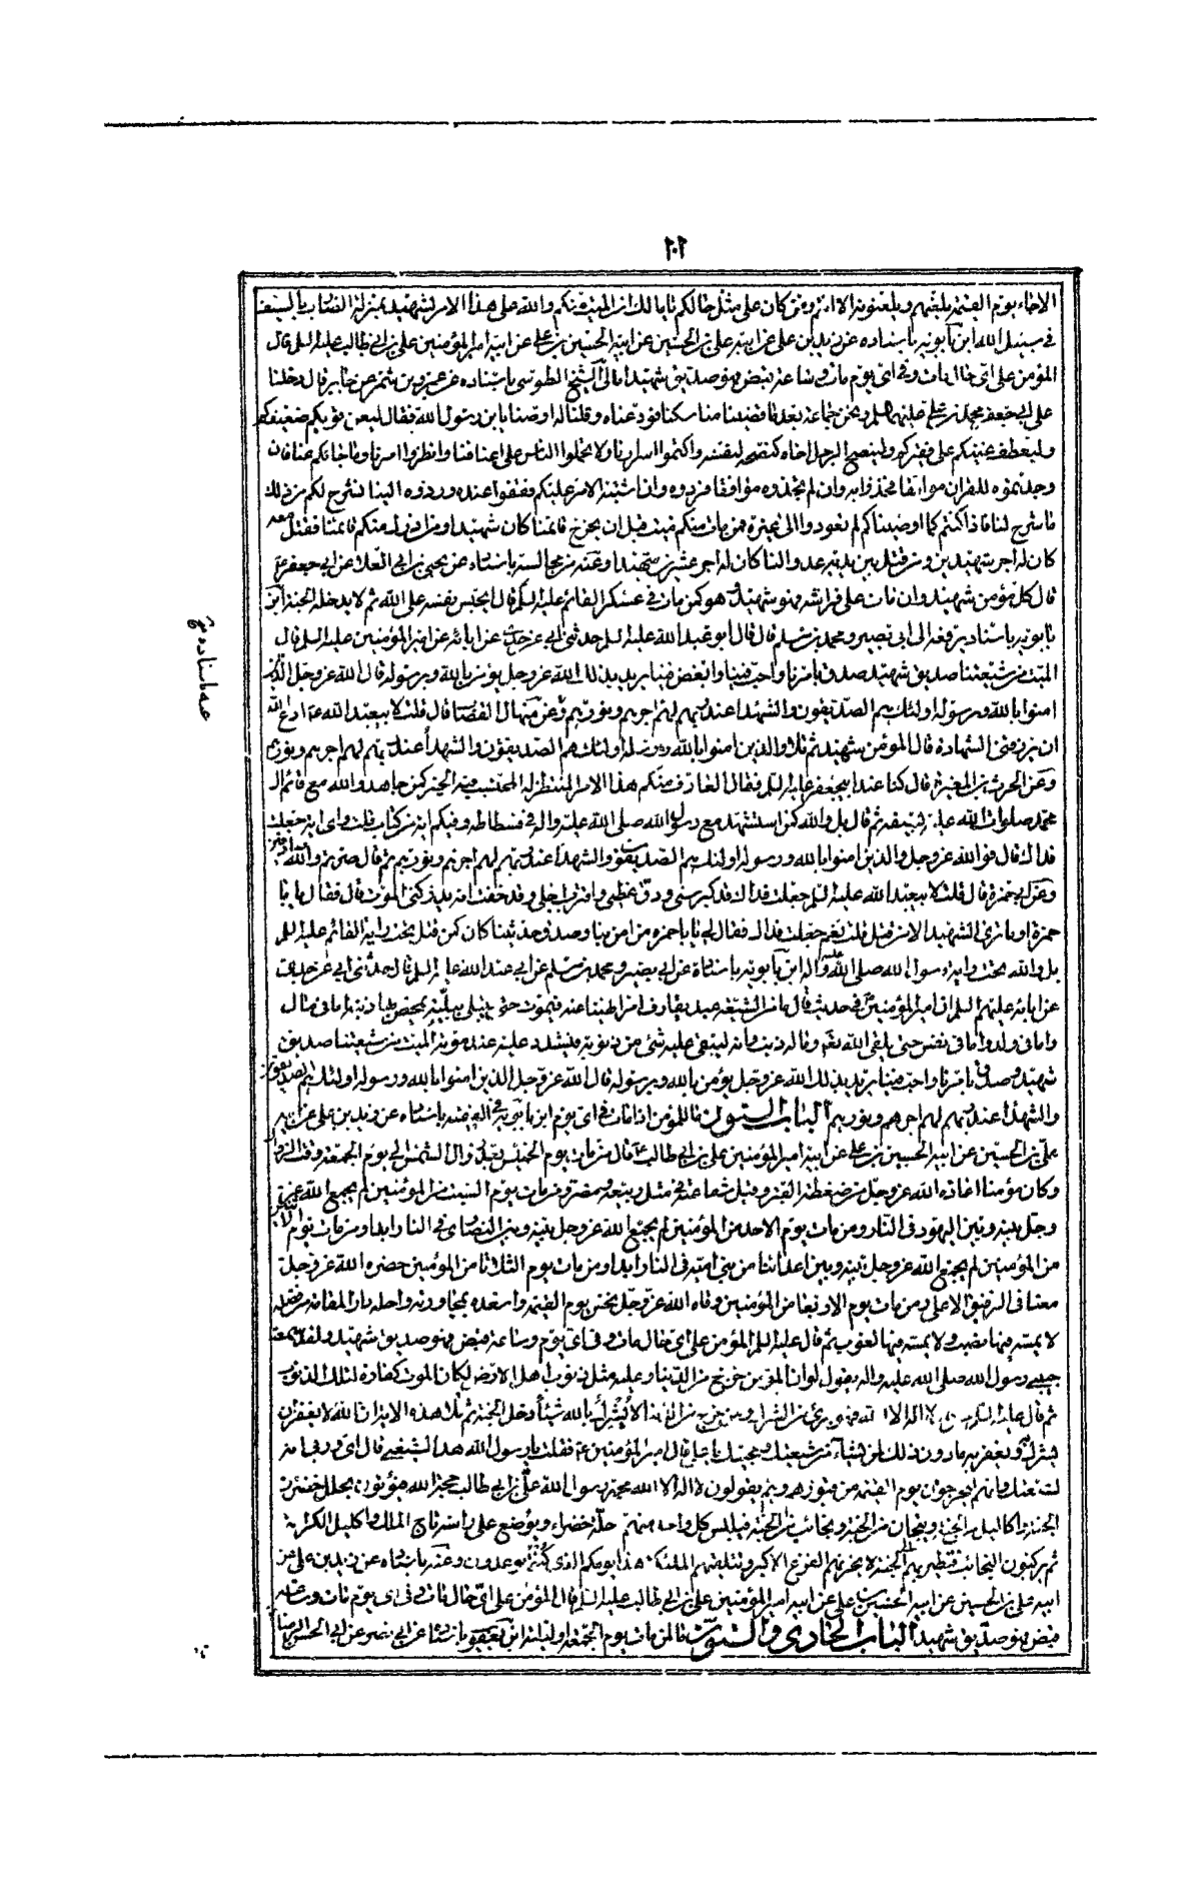 ١٠١
الاخاء يوم القيمة يلعنهم ويلعنونه الا انتم ومن كان على مثل حالكم يا مالك ان الميت منكم والله على هذا الامر لشهيد بمنزلة الضارب بالسيف
في سبيل الله ابن بابويه باسناده عن زيد بن على عن ابيه على بن الحسين عن ابيه الحسين بن على عن ابيه امير المؤمنين على بن ابي طالب عليه السلم قال
المؤمن على اى حال مات وفى اى يوم مات وساعة قبض فهو صديق شهيد امالى الشيخ الطوسى باسناده عن عمرو بن شمر عن جابر قال دخلنا
على ابى جعفر محمد بن على عليهما السلم ونحن جماعة بعد ما قضينا مناسكنا فودعناه وقلنا له اوصنا يابن رسول الله فقال ليعن قويكم ضعيفكم
وليعطف غنيكم على فقيركم ولينصح الرجل اخاه كنصحه لنفسه واكتموا اسرارنا ولا تحملوا الناس على اعناقنا وانظروا امرنا وما جاءكم عنا فان
وجدتموه للقران موافقا فخذوا به وان لم تجدوه موافقا فردوه وان اشتبه الامر عليكم فقفوا عنده وردوه الينا نشرح لكم من ذلك
ما شرح لنا فاذا كنتم كما اوصيناكم لم تعدوا الى غيره فمن مات منكم ميت قبل ان يخرج قائمنا كان شهيدا ومن ادرك منكم قائمنا فقتل معه
كان له اجر شهيدين ومن قتل بين يديه عدوا لنا كان له اجر عشرين شهيدا وعنه من مجالسه باسناده عن يحيى بن ابى العلا عن ابى جعفر ع
قال كل مؤمن شهيد وان مات على فراشه فهو شهيد وهو كمن مات فى عسكر القائم عليه السلم قال ايحبس نفسه على الله ثم لا يدخله الجنة ابن
بابويه باسناده يرفعه الى ابى بصير ومحمد بن مسلم قال قال ابو عبد الله عليه السلم حدثنى ابى عن جدى عن ابائه عن امير المؤمنين عليه السلم قال
الميت من شيعتنا صديق شهيد صدق بامرنا واحب فينا وابغض فينا يريد بذلك الله عز وجل يؤمن بالله وبرسوله قال الله عز وجل الذين
امنوا بالله ورسوله اولئك هم الصديقون والشهداء عند ربهم لهم اجرهم ونورهم وعن منهال القصاب قال قلت لابيعبد الله ع ادع الله
ان يرزقنى الشهادة قال المؤمن شهيد ثم تلا والذين امنوا بالله ورسله اولئك هم الصديقون والشهداء عند ربهم لهم اجرهم ونورهم
وعن الحرث بن المغيرة قال كنا عند ابيجعفر عليه السلم فقال العارف منكم هذا الامر المنتظر له المحتسب فيه الخير كمن جاهد والله مع قائم ال
محمد صلوات الله عليه بسيفه ثم قال بل والله كمن استشهد مع رسول الله صلى الله عليه واله فى فسطاطه وفيكم اية من كتاب الله قلت واى اية جعلت
فداك قال قول الله عز وجل والذين امنوا بالله ورسوله اولئك هم الصديقون والشهداء عند ربهم لهم اجرهم ونورهم ثم قال صرتم والله
وعن ابى حمزة قال قلت لابيعبد الله عليه السلم جعلت فداك قد كبر سنى ودق عظمى واقترب اجلى وقد خفت ان يدركنى الموت قال فقال لى يا با
حمزة او ما ترى الشهيد الا من قتل قلت نعم جعلت فداك فقال لى يا با حمزة من امن بنا وصدق حديثنا كان كمن قتل تحت راية القائم عليه السلم
بل والله تحت راية رسول الله صلى الله عليه واله ابن بابويه باسناده عن ابى بصير ومحمد بن مسلم عن ابى عبد الله عليه السلم قال حدثنى ابى عن جدى
عن ابائه عليهم السلم ان امير المؤمنين ع فى حديث قال ما من الشيعة عبد يقارف امرا نهيناه عنه فيموت حتى يبتلى ببلية تمحص بها ذنوبه اما فى مال
واما فى ولد واما فى نفس حتى يلقى الله تعم وما له ذنب وانه ليبقى عليه شىء من ذنوبه فيشدد عليه عند موته الميت من شيعتنا صديق
شهيد صدق بامرنا واحب فينا يريد بذلك الله عز وجل يؤمن بالله وبرسوله قال الله عز وجل الذين امنوا بالله ورسوله اولئك هم الصديقون
والشهداء عند ربهم لهم اجرهم ونورهم الباب الستون ما للمؤمن اذا مات فى اى يوم ابن بابويه باسناده عن زيد بن على عن ابيه
على بن الحسين عن ابيه الحسين بن على عن ابيه امير المؤمنين على بن ابى طالب ع قال من مات يوم الخميس بعد زوال الشمس الى يوم الجمعة وقت الزوال
وكان مؤمنا اعاذه الله عز وجل من ضغطة القبر وقبل شفاعته فى مثل ربيعة ومضر ومن مات يوم السبت من المؤمنين لم يجمع الله عز
وجل بينه وبين اليهود فى النار ومن مات يوم الاحد من المؤمنين لم يجمع الله عز وجل بينه وبين النصارى فى النار ابدا ومن مات يوم الاثنين
من المؤمنين لم يجمع الله عز وجل بينه وبين اعدائنا من بنى امية فى النار ابدا ومن مات يوم الثلاثا من المؤمنين حشره الله عز وجل
معنا فى الرفيق الاعلى ومن مات يوم الاربعا من المؤمنين وقاه الله عز وجل نحس يوم القيمة واسعده بمجاورته واحله دار المقامة من فضله
لا يمسه فيها نصب ولا يمسه فيها لغوب ثم قال عليه السلم المؤمن على اى حال مات وفى اى يوم وساعة قبض فهو صديق شهيد ولقد سمعت
حبيبى رسول الله صلى الله عليه واله يقول لو ان المؤمن خرج من الدنيا وعليه مثل ذنوب اهل الارض لكان الموت كفارة لتلك الذنوب
ثم قال عليه السلم من قال لا اله الا الله فهو برىء من الشرك ومن خرج من الدنيا لا يشرك بالله شيئا دخل الجنة ثم تلا هذه الاية ان الله لا يغفر ان
يشرك به ويغفر ما دون ذلك لمن يشاء من شيعتك ومحبيك يا على قال امير المؤمنين ع فقلت يا رسول الله هذا لشيعتى قال اى وربى انه
لشيعتك وانهم ليخرجون يوم القيمة من قبورهم وهم يقولون لا اله الا الله محمد رسول الله على بن ابى طالب حجة الله فيؤتون بحلل خضر من
الجنة واكاليل من الجنة وتيجان من الجنة ونجائب من الجنة فيلبس كل واحد منهم حلة خضراء ويوضع على راسه تاج الملك واكليل الكرامة
ثم يركبون النجائب فتطير بهم الى الجنة لا يحزنهم الفزع الاكبر وتتلقيهم الملئكة هذا يومكم الذى كنتم توعدون وعنه باسناده عن زيد بن على عن
ابيه على بن الحسين عن ابيه الحسين بن على عن ابيه امير المؤمنين على بن ابى طالب عليه السلم قال المؤمن على اى حال مات وفى اى يوم مات وساعة
قبض فهو صديق شهيد الباب الحادى والستون ما لمن مات يوم الجمعة او ليلته ابن يعقوب باسناده عن ابى نصر عن ابى الحسن الرضا
عنه باسناده